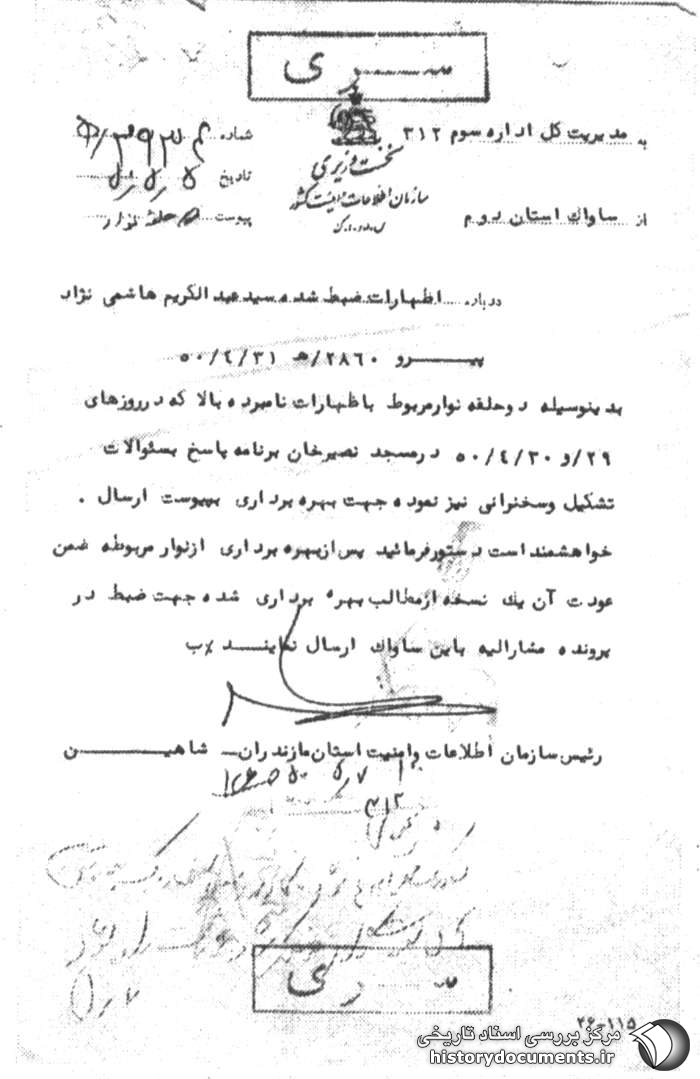 سری
به مدیریت کل اداره سوم ۳۱۲
نخست وزیری
سازمان اطلاعات و امنیت کشور
س.ا.و.ا.ک
شماره
تاریخ
پیوست دو حلقه نوار
از ساواك استان دوم
درباره اظهارات ضبط شده سید عبدالکریم هاشمی نژاد
پیرو ۲۸۶۰/هـ ۵۰/۴/۳۱
بدینوسیله دوحلقه نوارمربوط باظهارات نامبرده بالا که درروزهای
۲۹/و ۵۰/۴/۳۰ درمسجد نصیرخان برنامه پاسخ بسئوالات
تشکیل وسخنرانی نیز نموده جهت بهره برداری بپیوست ارسال .
خواهشمند است دستورفرمائید پس ازبهره برداری ازنوار مربوطه ضمن
عودت آن یك نسخه ازمطالب بهره برداری شده جهت ضبط در
پرونده مشارالیه باین ساواك ارسال نمایند
رئیس سازمان اطلاعات وامنیت استان مازندران شاهین
۳۱۲
سری
۲۶-۱۱۵
مرکز بررسی اسناد تاریخی
historydocuments.ir